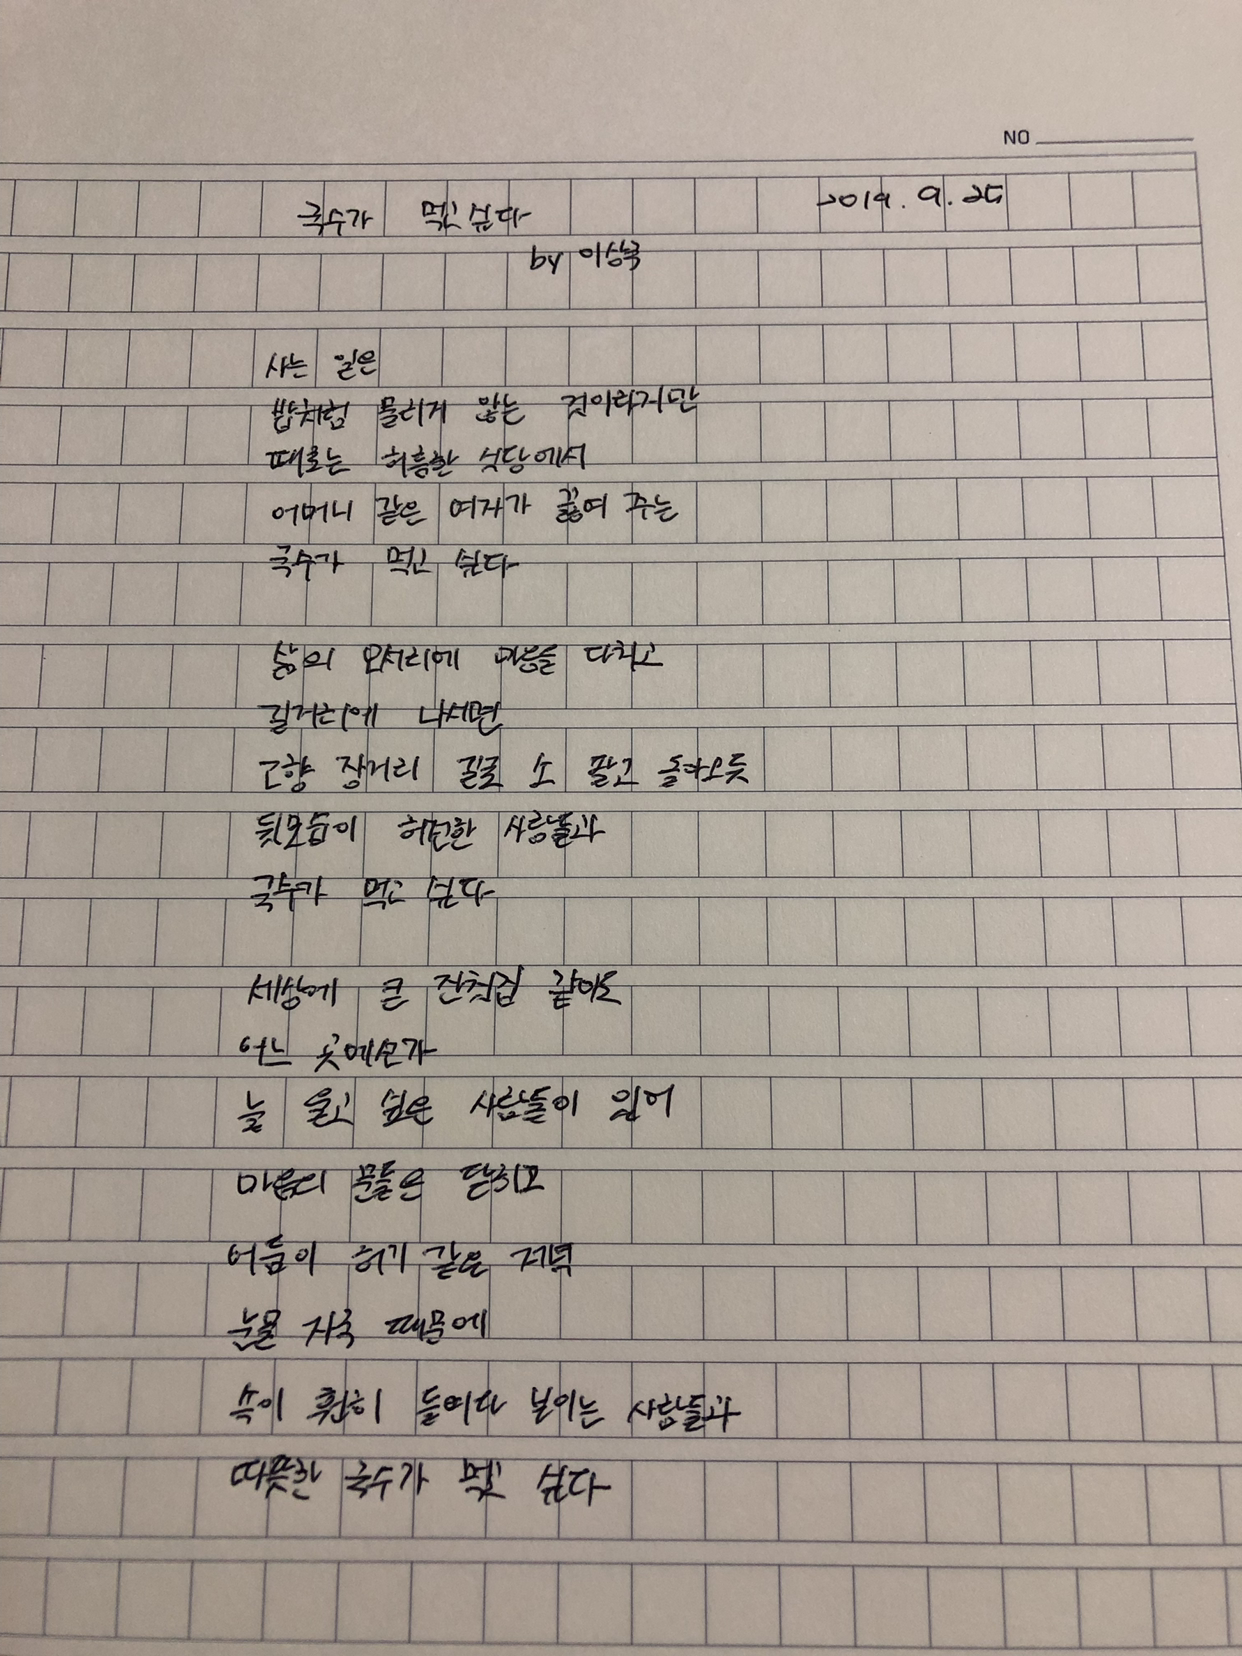 NO
국수가 먹고 싶다 2019. 9. 25
by 이상국
사는 일은
밥처럼 물리지 않는 것이라지만
때로는 허름한 식당에서
어머니 같은 여자가 끓여 주는
국수가 먹고 싶다
삶의 모서리에 마음을 다치고
길거리에 나서면
고향 장거리 길로 소 팔고 돌아오듯
뒷모습이 허전한 사람들과
국수가 먹고 싶다
세상에 큰 잔칫집 같아도
어느 곳에선가
늘 울고 싶은 사람들이 있어
마음의 문들은 닫히고
어둠이 허기 같은 저녁
눈물 자국 때문에
속이 훤히 들여다 보이는 사람들과
따뜻한 국수가 먹고 싶다